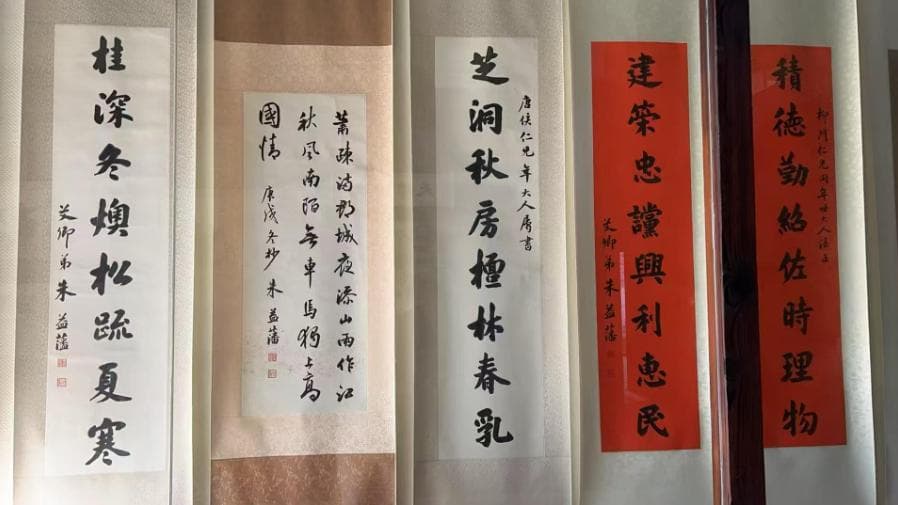 仁兄同年世大人法正
積德勤紹佐時理物
建榮忠讜興利惠民
艾卿弟朱益藩
仁兄年大人屬書
芝洞秋房檀林春乳
蕭疎繞郡城夜添山雨作江
秋風南陌無車馬獨上高
國情
庚戌冬抄 朱益藩
桂深冬燠松疏夏寒
艾卿弟朱益藩